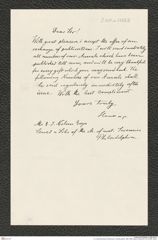 Dear Sir!
With great pleasure I accept the offer of an
exchange of publications. I will send immediately
all numbers of our Annals which have been
published till now, and will be very thankful
for every gift which you may send back. The
following Numbers of our Annals shall
be sent regularly immediately after
issue. With the best compliments
Yours truly,
Mr. E. J. Nolan Esqu
Philadelphia